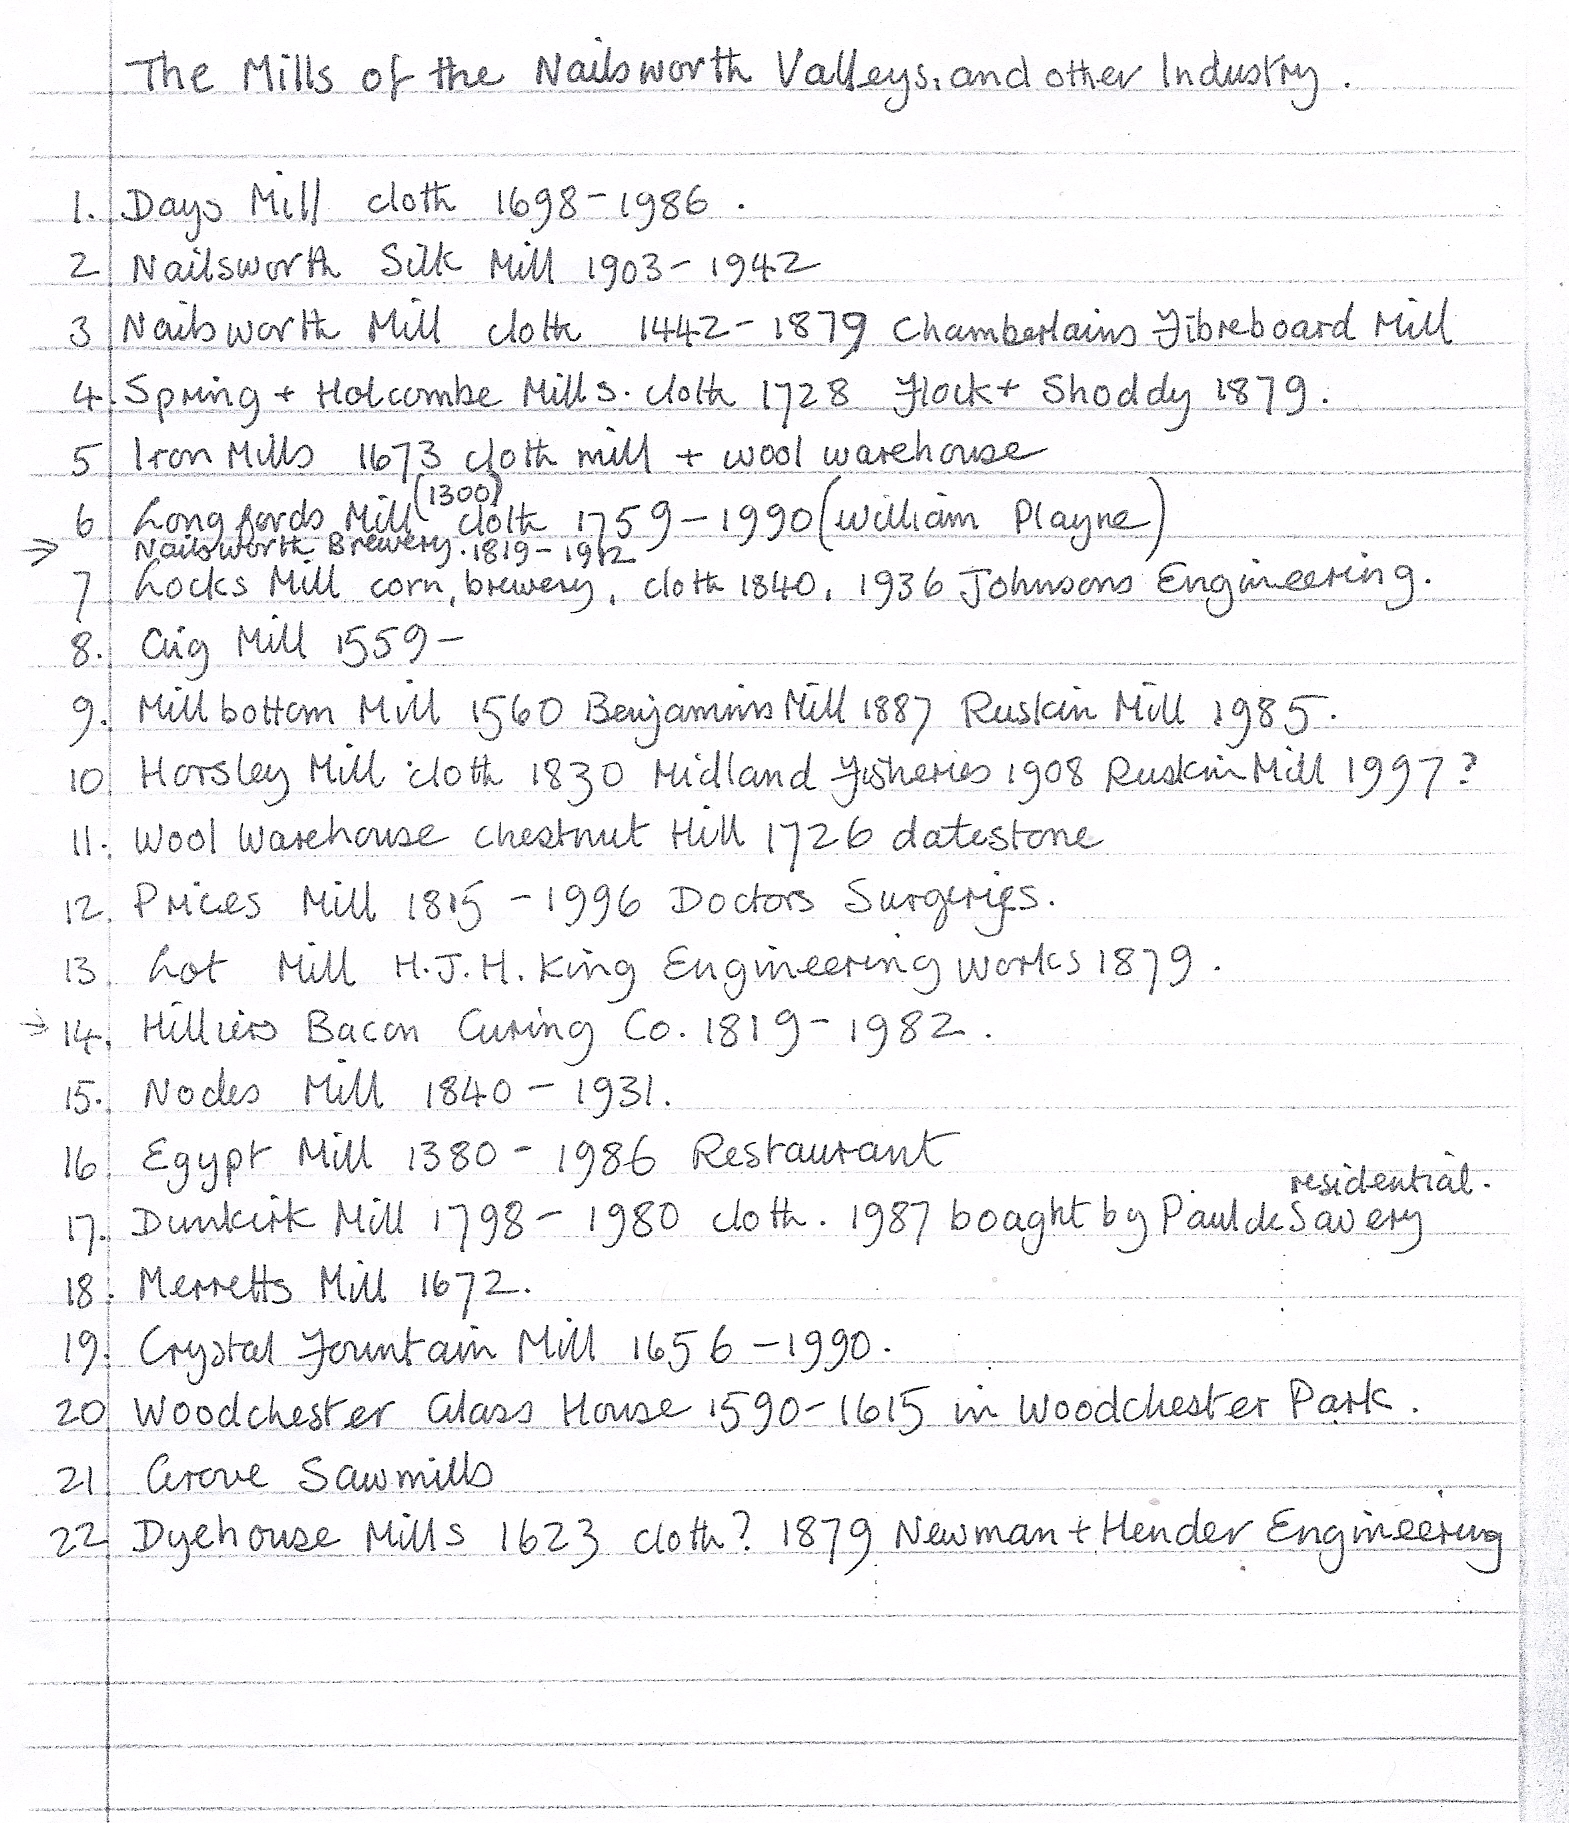 The Mills of the Nailsworth Valleys, and other Industry.
1. Days Mill cloth 1698-1986.
2 Nailsworth Silk Mill 1903-1942
3 Nailsworth Mill cloth 1442-1879 Chamberlains Fibreboard Mill
4. Spring + Holcombe Mills. cloth 1728 Flock + Shoddy 1879.
5 Iron Mills 1673 cloth mill + wool warehouse
(1300)
6 Longfords Mill cloth 1759-1990 (William Playne)
→ Nailsworth Brewery. 1819-1912
7 Locks Mill corn, brewery, cloth 1840, 1936 Johnsons Engineering.
8. Gig Mill 1559-
9. Millbottom Mill 1560 Benjamins Mill 1887 Ruskin Mill 1985.
10 Horsley Mill cloth 1830 Midland Fisheries 1908 Ruskin Mill 1997?
11. Wool Warehouse Chestnut Hill 1726 datestone
12. Prices Mill 1815-1996 Doctors Surgeries.
13. Lot Mill H.J.H. King Engineering Works 1879.
→ 14. Hilliers Bacon Curing Co. 1819-1982.
15. Nodes Mill 1840-1931.
16. Egypt Mill 1380-1986 Restaurant
residential.
17. Dunkirk Mill 1798-1980 cloth. 1987 boaght by Paul de Savery
18. Merretts Mill 1672.
19. Crystal Fountain Mill 1656-1990.
20 Woodchester Glass House 1590-1615 in Woodchester Park.
21 Grove Sawmills
22 Dyehouse Mills 1623 cloth? 1879 Newman + Hender Engineering